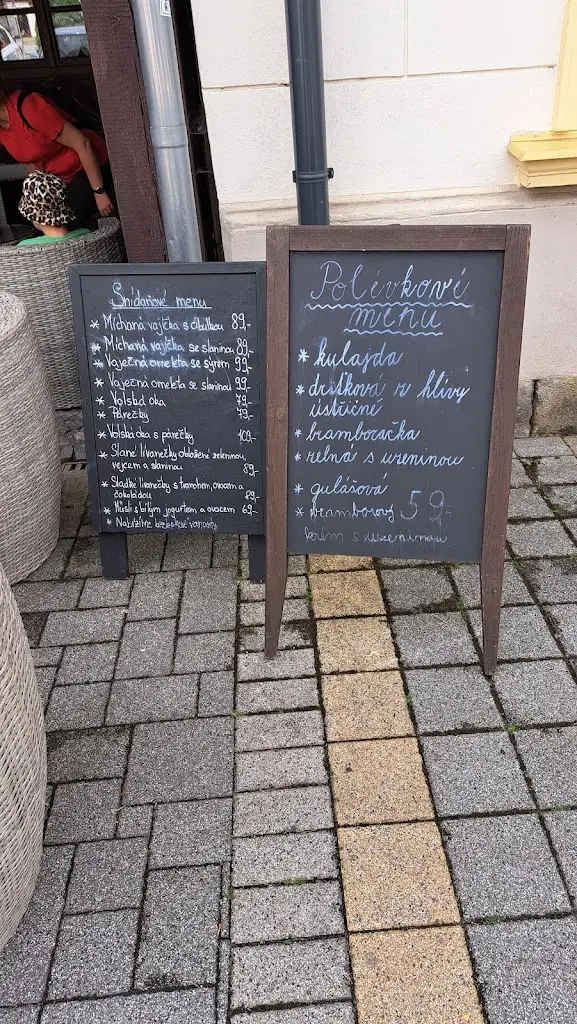 Snídaňové menu
* Míchaná vajíčka s cibulkou 89,-
* Míchaná vajíčka se slaninou 89,-
* Vaječná omeleta se sýrem 99,-
* Vaječná omeleta se slaninou 99,-
* Volská oka 79,-
* Párečky 79,-
* Volská oka s párečky 109,-
* Slané lívanečky obložené zeleninou,
vejcem a slaninou 89,-
* Sladké lívanečky s tvarohem, ovocem a
čokoládou 89,-
* Müsli s bílým jogurtem a ovocem 69,-
* Nabízíme bezlepkové varianty
Polévkové
menu
* kulajda
* dršťková z hlívy
ústřičné
* bramboračka
* zelná s uzeninou
* gulášová
* bramborový 59,-
krém s uzeninou